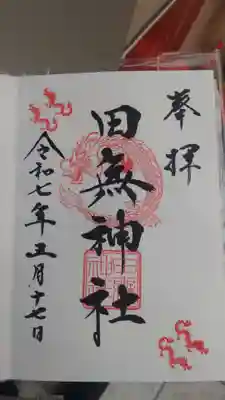 奉拝
田無神社
令和七年五月十七日